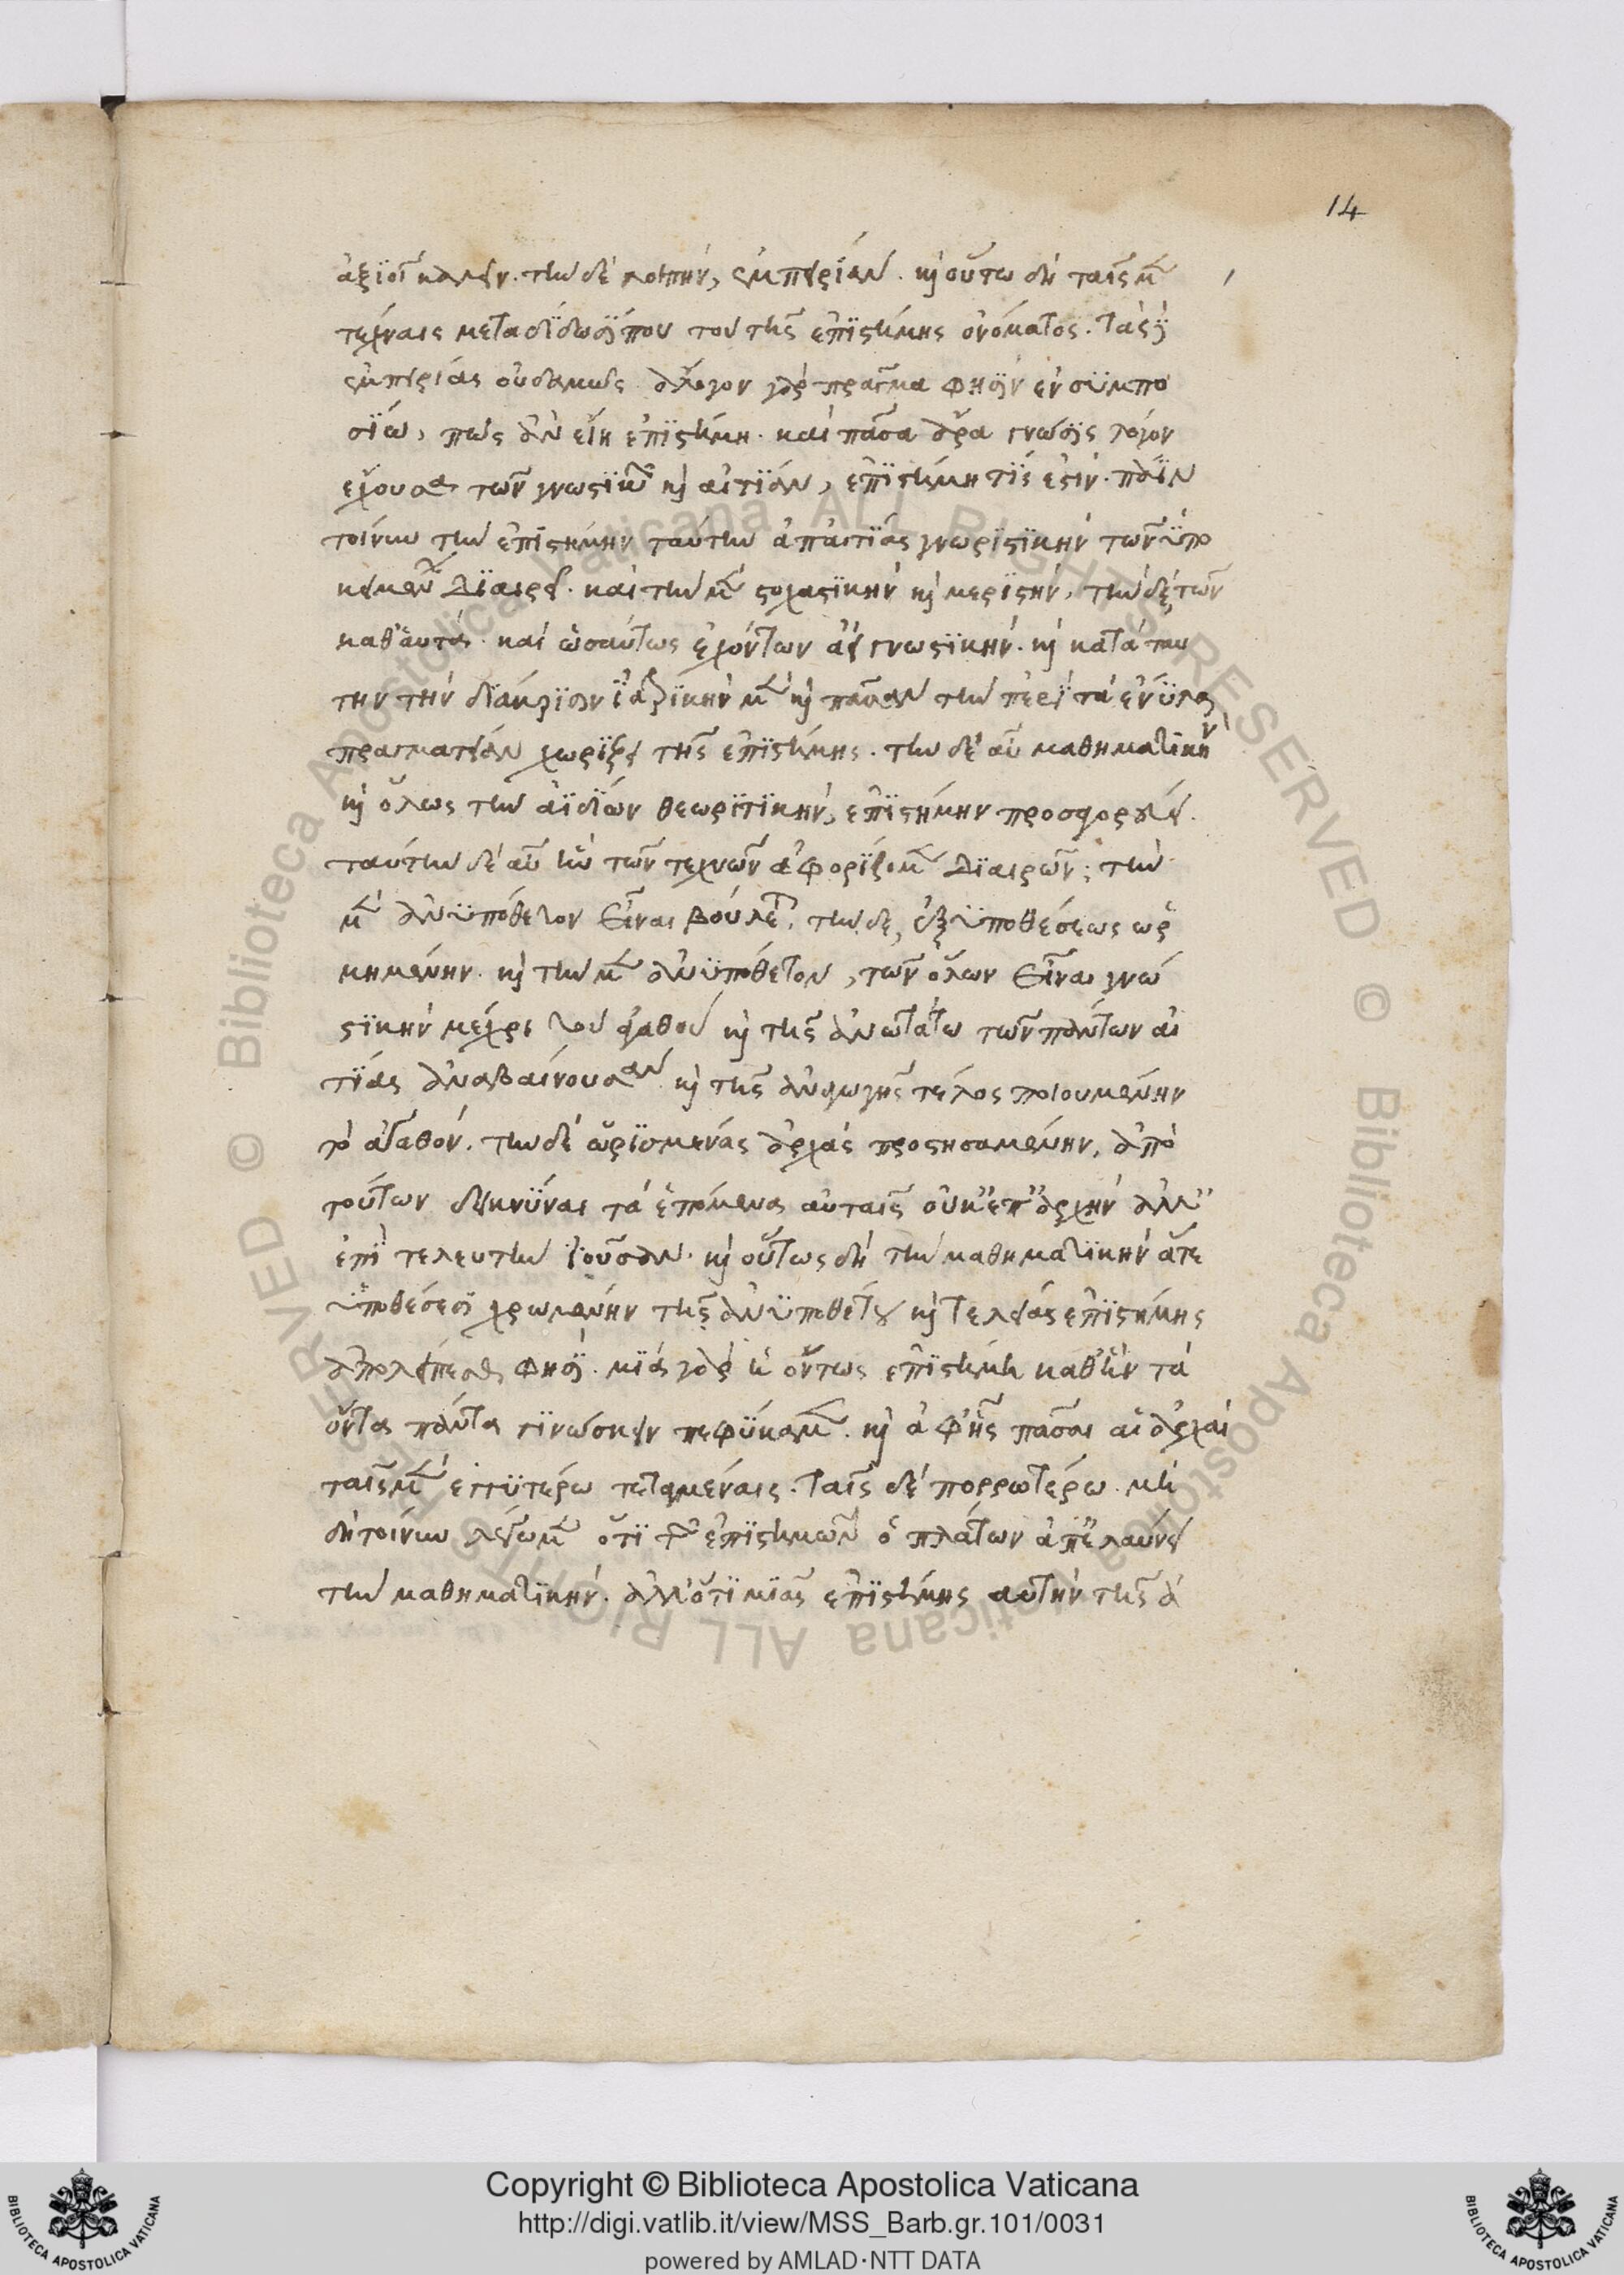 14
ἀξϊοῖ καλεῖν. τὴν δὲ λοιπὴν, ἐμπειρίαν. καὶ οὕτω δὴ ταῖς μὲν
τέχναις μεταδίδωσί που τοῦ τῆς ἐπϊστήμης ὀνόματος. τὰς δὲ
ἐμπειρίας οὐδαμῶς. ἄλογον γὰρ πρᾶγμα φησὶν ἐν συμπο
σίω, πῶς ἂν εἴη ἐπϊστήμη. καὶ πᾶσα ἄρα γνῶσις λόγον
ἔχουσα τῶν γνωστϊκῶν καὶ αἰτϊὰν, ἐπϊστήμη τίς ἐστιν. πάλϊν
τοίνυν τὴν ἐπϊστήμην ταύτην ἀπ' αἰτϊάς γνωρϊστϊκὴν τῶν ὑπο
κειμένων διαιρεῖ. καὶ τὴν μὲν στοχαστϊκὴν καὶ μερϊστήν, τὴν δὲ τῶν
καθ' αὑτὰ. καὶ ὡσαύτως ἐχόντων ἀεὶ γνωστϊκήν. καὶ κατὰ ταύ
την τὴν διάκρϊσϊν ϊατρϊκὴν μὲν καὶ πᾶσαν τὴν περὶ τὰ ἔνυλα
πραγματείαν χωρίζει τῆς ἐπϊστήμης. τὴν δὲ αὖ μαθηματϊκὴν
καὶ ὅλως τὴν ἀϊδίων θεωρϊτϊκὴν, ἐπϊστήμην προσαγορεύει.
ταύτην δὲ αὖ ἣν τῶν τεχνῶν ἀφορίζομεν διαιρῶν; τὴν
μὲν ἀνυπόθετον εἶναι βούλεται. τὴν δὲ, ἐξ ὑποθέσεως ὡρ
μημένην. καὶ τὴν μὲν ἀνυπόθετον, τῶν ὅλων εἶναι γνω
στϊκὴν μέχρι τοῦ ἀγαθοῦ καὶ τῆς ἀνωτάτω τῶν πάντων αἰ
τίας ἀναβαίνουσαν καὶ τῆς ἀναγωγῆς τέλος ποιουμένην
τὸ ἀγαθόν. τὴν δὲ ὡρϊσμένας ἀρχὰς προστησαμένην, ἀπὸ
τούτων δεικνύναι τὰ ἑπόμενα αὐταῖς οὐκ' ἐπ' ἀρχὴν ἀλλ'
ἐπὶ τελευτὴν ϊοῦσαν. καὶ οὕτως δὴ τὴν μαθηματϊκὴν ἅτε
ὑποθέσεσϊ χρωμένην τῆς ἀνυποθέτου καὶ τελείας ἐπϊστήμης
ἀπολείπεσθαι φησϊ. μία γὰρ ἡ ὄντως ἐπϊστήμη καθ' ἣν τὰ
ὄντα πάντα γϊνώσκειν πεφύκαμεν. καὶ ἀφ' ἧς πᾶσαι αἱ ἀρχαὶ
ταῖς μὲν ἐγγυτέρω τεταγμέναις. ταῖς δὲ πορρωτέρω. μὴ
δὴ τοίνυν λέγωμεν ὅτϊ τῶν ἐπϊστημῶν ὁ πλάτων ἀπελαύνει
τὴν μαθηματϊκήν. ἀλλ' ὅτϊ μϊᾶς ἐπϊστήμης αὐτὴν τῆς ἀ
© Biblioteca Apostolica Vaticana ALL RIGHTS RESERVED © Biblioteca Apostolica Vaticana ALL RIGHTS RESERVED
Copyright © Biblioteca Apostolica Vaticana
http://digi.vatlib.it/view/MSS_Barb.gr.101/0031
powered by AMLAD·NTT DATA
BIBLIOTECA APOSTOLICA VATICANA
BIBLIOTECA APOSTOLICA VATICANA